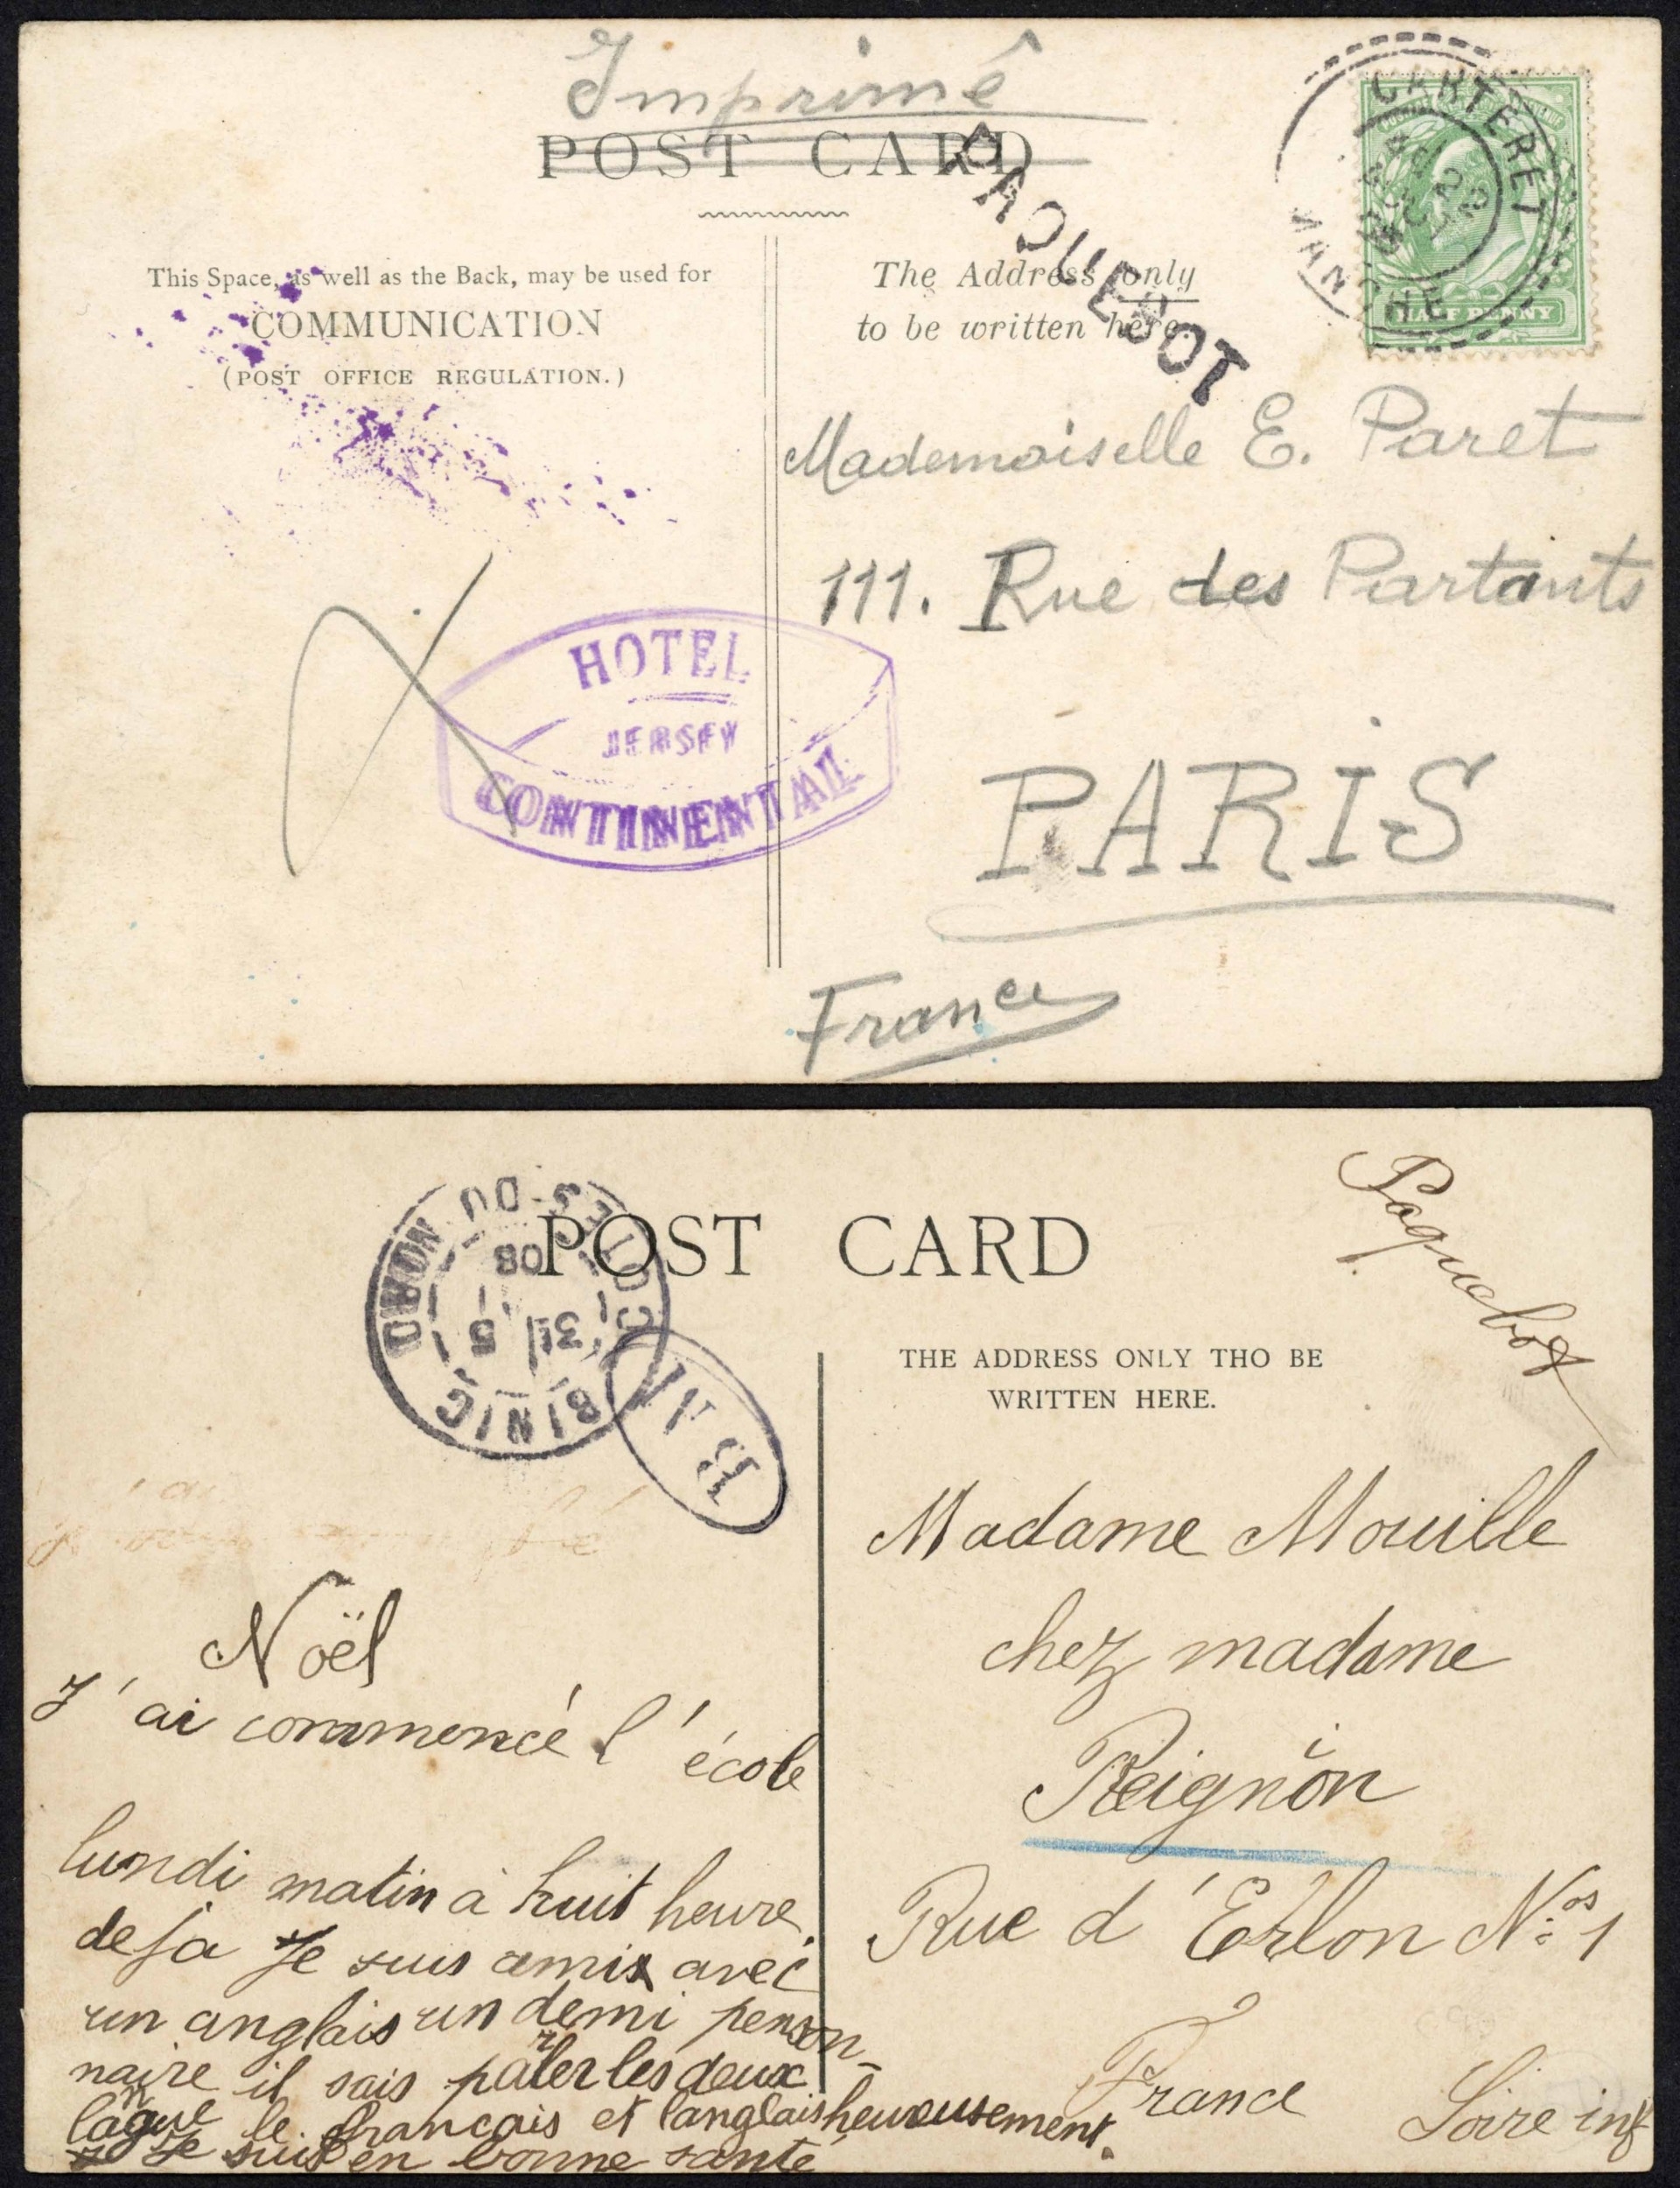 Imprimé
POST CARD
PAQUEBOT
CARTERET
MANCHE
HALF PENNY
This Space, as well as the Back, may be used for
COMMUNICATION
(POST OFFICE REGULATION.)
The Address only
to be written here.
Mademoiselle E. Paret
111. Rue des Partants
HOTEL
JERSEY
CONTINENTAL
PARIS
France
Paquebot
POST CARD
COTES DU NORD
08
31 5
BINIC
BM
THE ADDRESS ONLY THO BE
WRITTEN HERE.
Madame Mouille
chez madame
Reignon
Rue d'Erlon Nos 1
France Loire inf
Noël
J'ai commencé l'école
lundi matin à huit heure.
deja Je suis amis avec
un anglais un demi penson-
naire il sais parler les deux
langue le francais et langlais heureusement.
Je suis en bonne santé